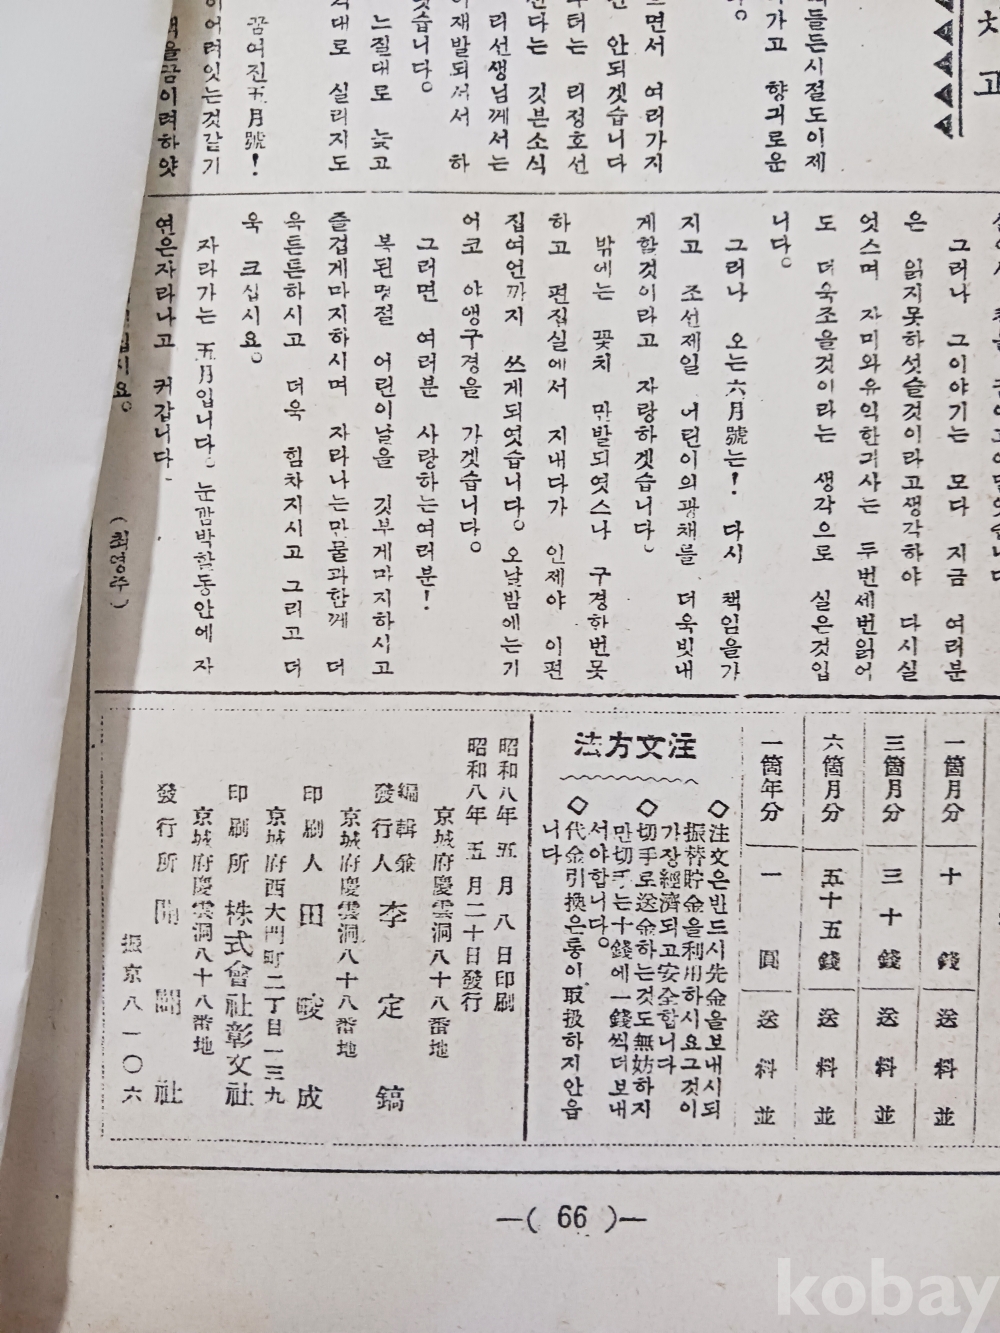 치고
들든시절도이제
가고 향긔로운
다。
으면서 여러가지
안되겟습니다
부터는 리정호선
신다는 깃븐소식
리선생님께서는
재발되셔서 하
겟습니다。
느절대로 늦고
대로 실리지도
꿈여진五月號!
이어려잇는것같기
책을꿈이려하얏
그러나 그이야기는 모다 지금 여러분
은 읽지못하섯슬것이라고생각하야 다시실
엇스며 자미와유익한긔사는 두번세번읽어
도 더욱조을것이라는 생각으로 실은것입
니다。
그러나 오는六月號는! 다시 책임을가
지고 조선제일 어린이의광채를 더욱빗내
게할것이라고 자랑하겟습니다。
밖에는 꽃치 만발되엿스나 구경한번못
하고 편집실에서 지내다가 인제야 이편
집여언까지 쓰게되엿습니다。 오날밤에는기
어코 야앵구경을 가겟습니다。
그러면 여러분 사랑하는여러분!
복된명절 어린이날을 깃부게마지하시고
즐겁게마지하시며 자라나는만물과함께 더
욱튼튼하시고 더욱 힘차지시고 그리고 더
욱 크십시요。
자라가는 五月입니다。 눈깜박할동안에 자
연은자라나고 커갑니다.
십시요。
(최영주)
一箇月分 十錢 送料並
三箇月分 三十錢 送料並
六箇月分 五十五錢 送料並
一箇年分 一圓 送料並
注文方法
◇注文은반드시先金을보내시되
振替貯金을利用하시요그것이
가장經濟되고安全합니다
◇切手로送金하는것도無妨하지
만切手는十錢에一錢씩더보내
서야합니다。
◇代金引換은통이取扱하지안읍
니다
昭和八年 五月 八日印刷
昭和八年 五月二十日發行
京城府慶雲洞八十八番地
編輯兼
發行人 李定鎬
京城府慶雲洞八十八番地
印刷人 田畯成
京城府西大門町二丁目一三九
印刷所 株式會社彰文社
京城府慶雲洞八十八番地
發行所 開闢社
振京八一〇六
—( 66 )—
kobay